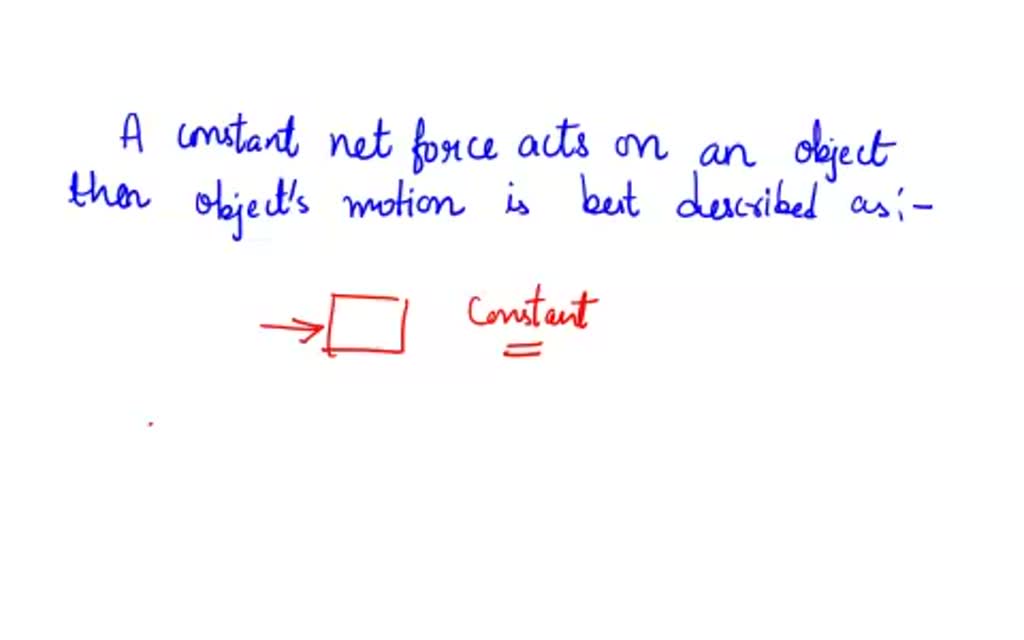 A constant net force acts on an object
then object's motion is best described as:-
Constant